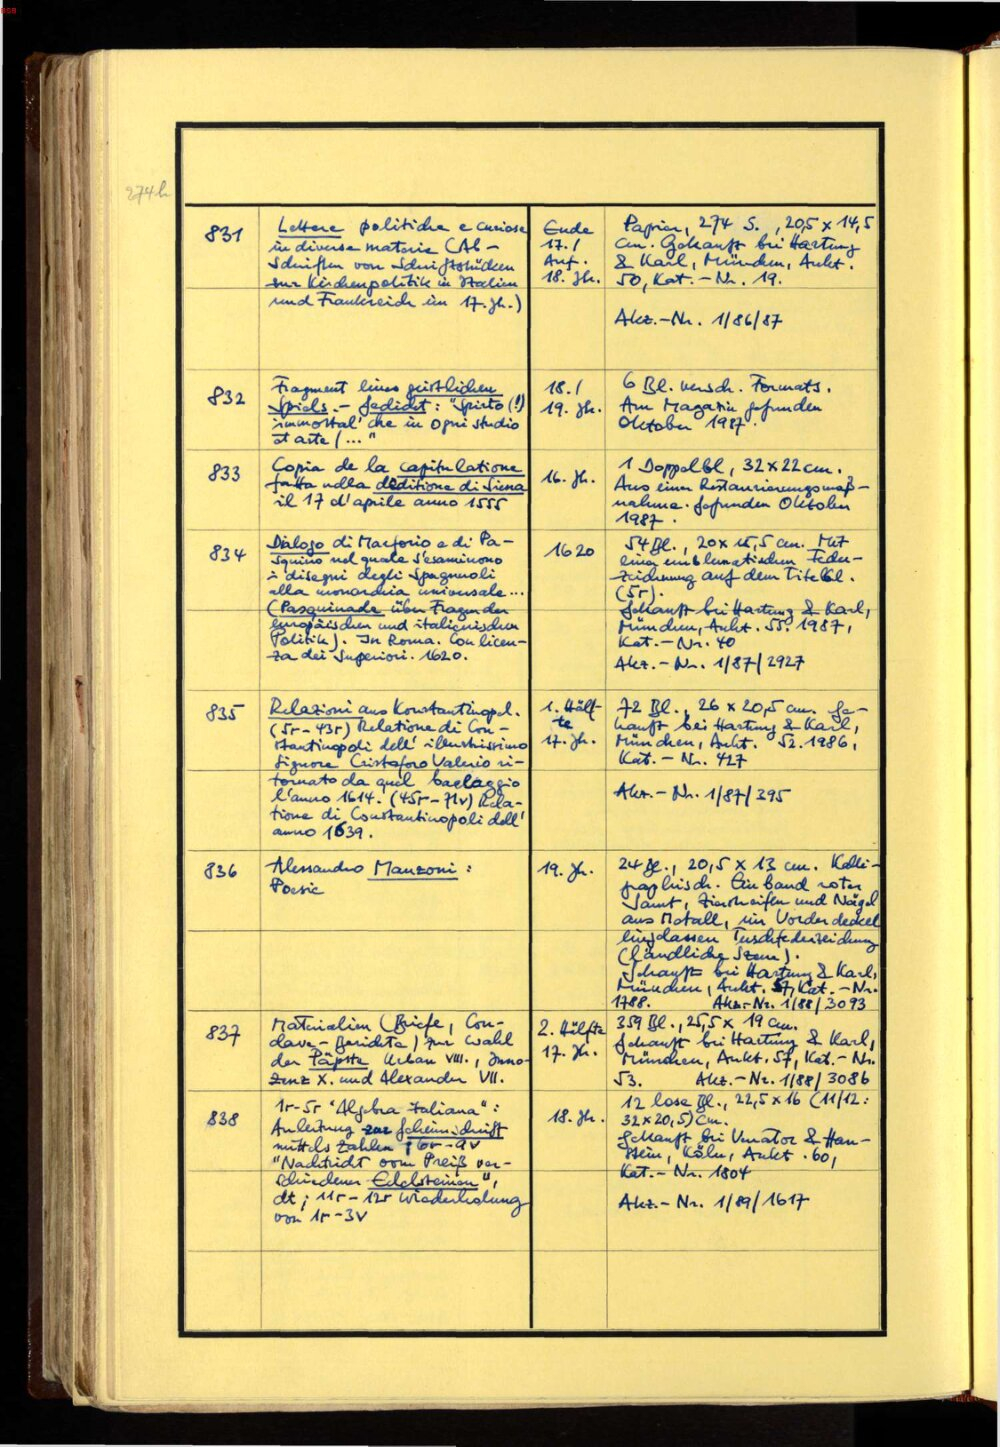 274h
831
Lettere politiche e curiose
in diverse materie (Ab-
schriften von Schriftstücken
zur Kirchenpolitik in Italien
und Frankreich im 17. Jh.)
Ende
17./
Anf.
18. Jh.
Papier, 274 S., 20,5 x 14,5
cm. Gekauft bei Hartung
& Karl, München, Aukt.
50, Kat.-Nr. 19.
Akz.-Nr. 1/86/87
832
Fragment eines geistlichen
Spiels. - Gedicht: "Spirto (!)
immortal' che in ogni studio
et arte /..."
18./
19. Jh.
6 Bl. versch. Formats.
Am Magazin gefunden
Oktober 1987.
833
Copia de la capitulatione
fatta nella deditione di Siena
il 17 d'aprile anno 1555
16. Jh.
1 Doppelbl, 32x22 cm.
Aus einer Restaurierungsmaß-
nahme. Gefunden Oktober
1987.
834
Dialogo di Marforio e di Pa-
squino nel quale s'esaminono
i disegni degli Spagnuoli
alla monarchia universale...
(Pasquinade über Fragen der
europäischen und italienischen
Politik). In Roma. Con licen-
za dei Superiori. 1620.
1620
54 Bl., 20x15,5 cm. Mit
einer emblematischen Feder-
zeichnung auf dem Titelbl.
(5r).
Gekauft bei Hartung & Karl,
München, Aukt. 55. 1987,
Kat.-Nr. 40
Akz.-Nr. 1/87/2927
835
Relazioni aus Konstantinopel.
(5r-43r) Relatione di Con-
stantinopoli dell' illustrissimo
Signore Cristoforo Valerio ri-
tornato da quel bailaggio
l'anno 1614. (45r-71v) Rela-
tione di Constantinopoli dell'
anno 1639.
1. Hälf-
te
17. Jh.
72 Bl., 26 x 20,5 cm. Ge-
kauft bei Hartung & Karl,
München, Aukt. 52. 1986,
Kat.-Nr. 427
Akz.-Nr. 1/87/395
836
Alessandro Manzoni:
Poesie
19. Jh.
24 Bl., 20,5 x 13 cm. Kalli-
graphisch. Einband roter
Samt, Zierstreifen und Nägel
aus Metall, im Vorderdeckel
eingelassen Tuschfederzeichnung
(ländliche Szene).
Gekauft bei Hartung & Karl,
München, Aukt. 57, Kat.-Nr.
1788. Akz.-Nr. 1/88/3093
837
Materialien (Briefe, Con-
clave-Berichte) zur Wahl
der Päpste Urban VIII., Inno-
zenz X. und Alexander VII.
2. Hälfte
17. Jh.
359 Bl., 25,5 x 19 cm.
Gekauft bei Hartung & Karl,
München, Aukt. 57, Kat.-Nr.
53. Akz.-Nr. 1/88/3086
838
1r-5r "Algebra Italiana":
Anleitung zur Geheimschrift
mittels Zahlen; 6r-9v
"Nachricht vom Preiß ver-
schiedener Edelsteinen",
dt; 11r-12r Wiederholung
von 1r-3v
18. Jh.
12 lose Bl., 22,5x16 (11/12:
32x20,5) cm.
Gekauft bei Venator & Han-
stein, Köln, Aukt. 60,
Kat.-Nr. 1804
Akz.-Nr. 1/89/1617